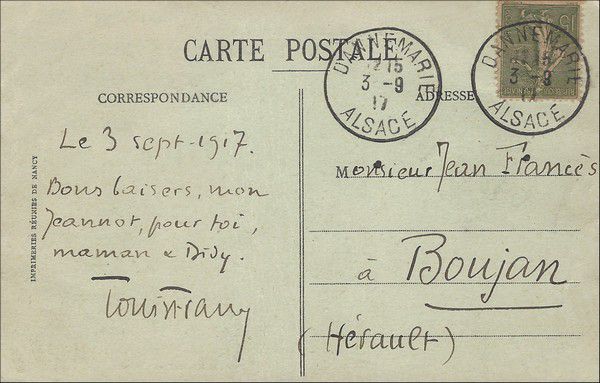 CARTE POSTALE
DANNEMARIE
12 15
3 - 9
17
ALSACE
DANNEMARIE
15
3 - 9
17
ALSACE
15
CORRESPONDANCE
ADRESSE
Le 3 sept-1917.
Bons baisers, mon
Jeannot, pour toi,
maman & Didy.
IMPRIMERIES RÉUNIES DE NANCY
Monsieur Jean Francès
à Boujan
(Hérault)